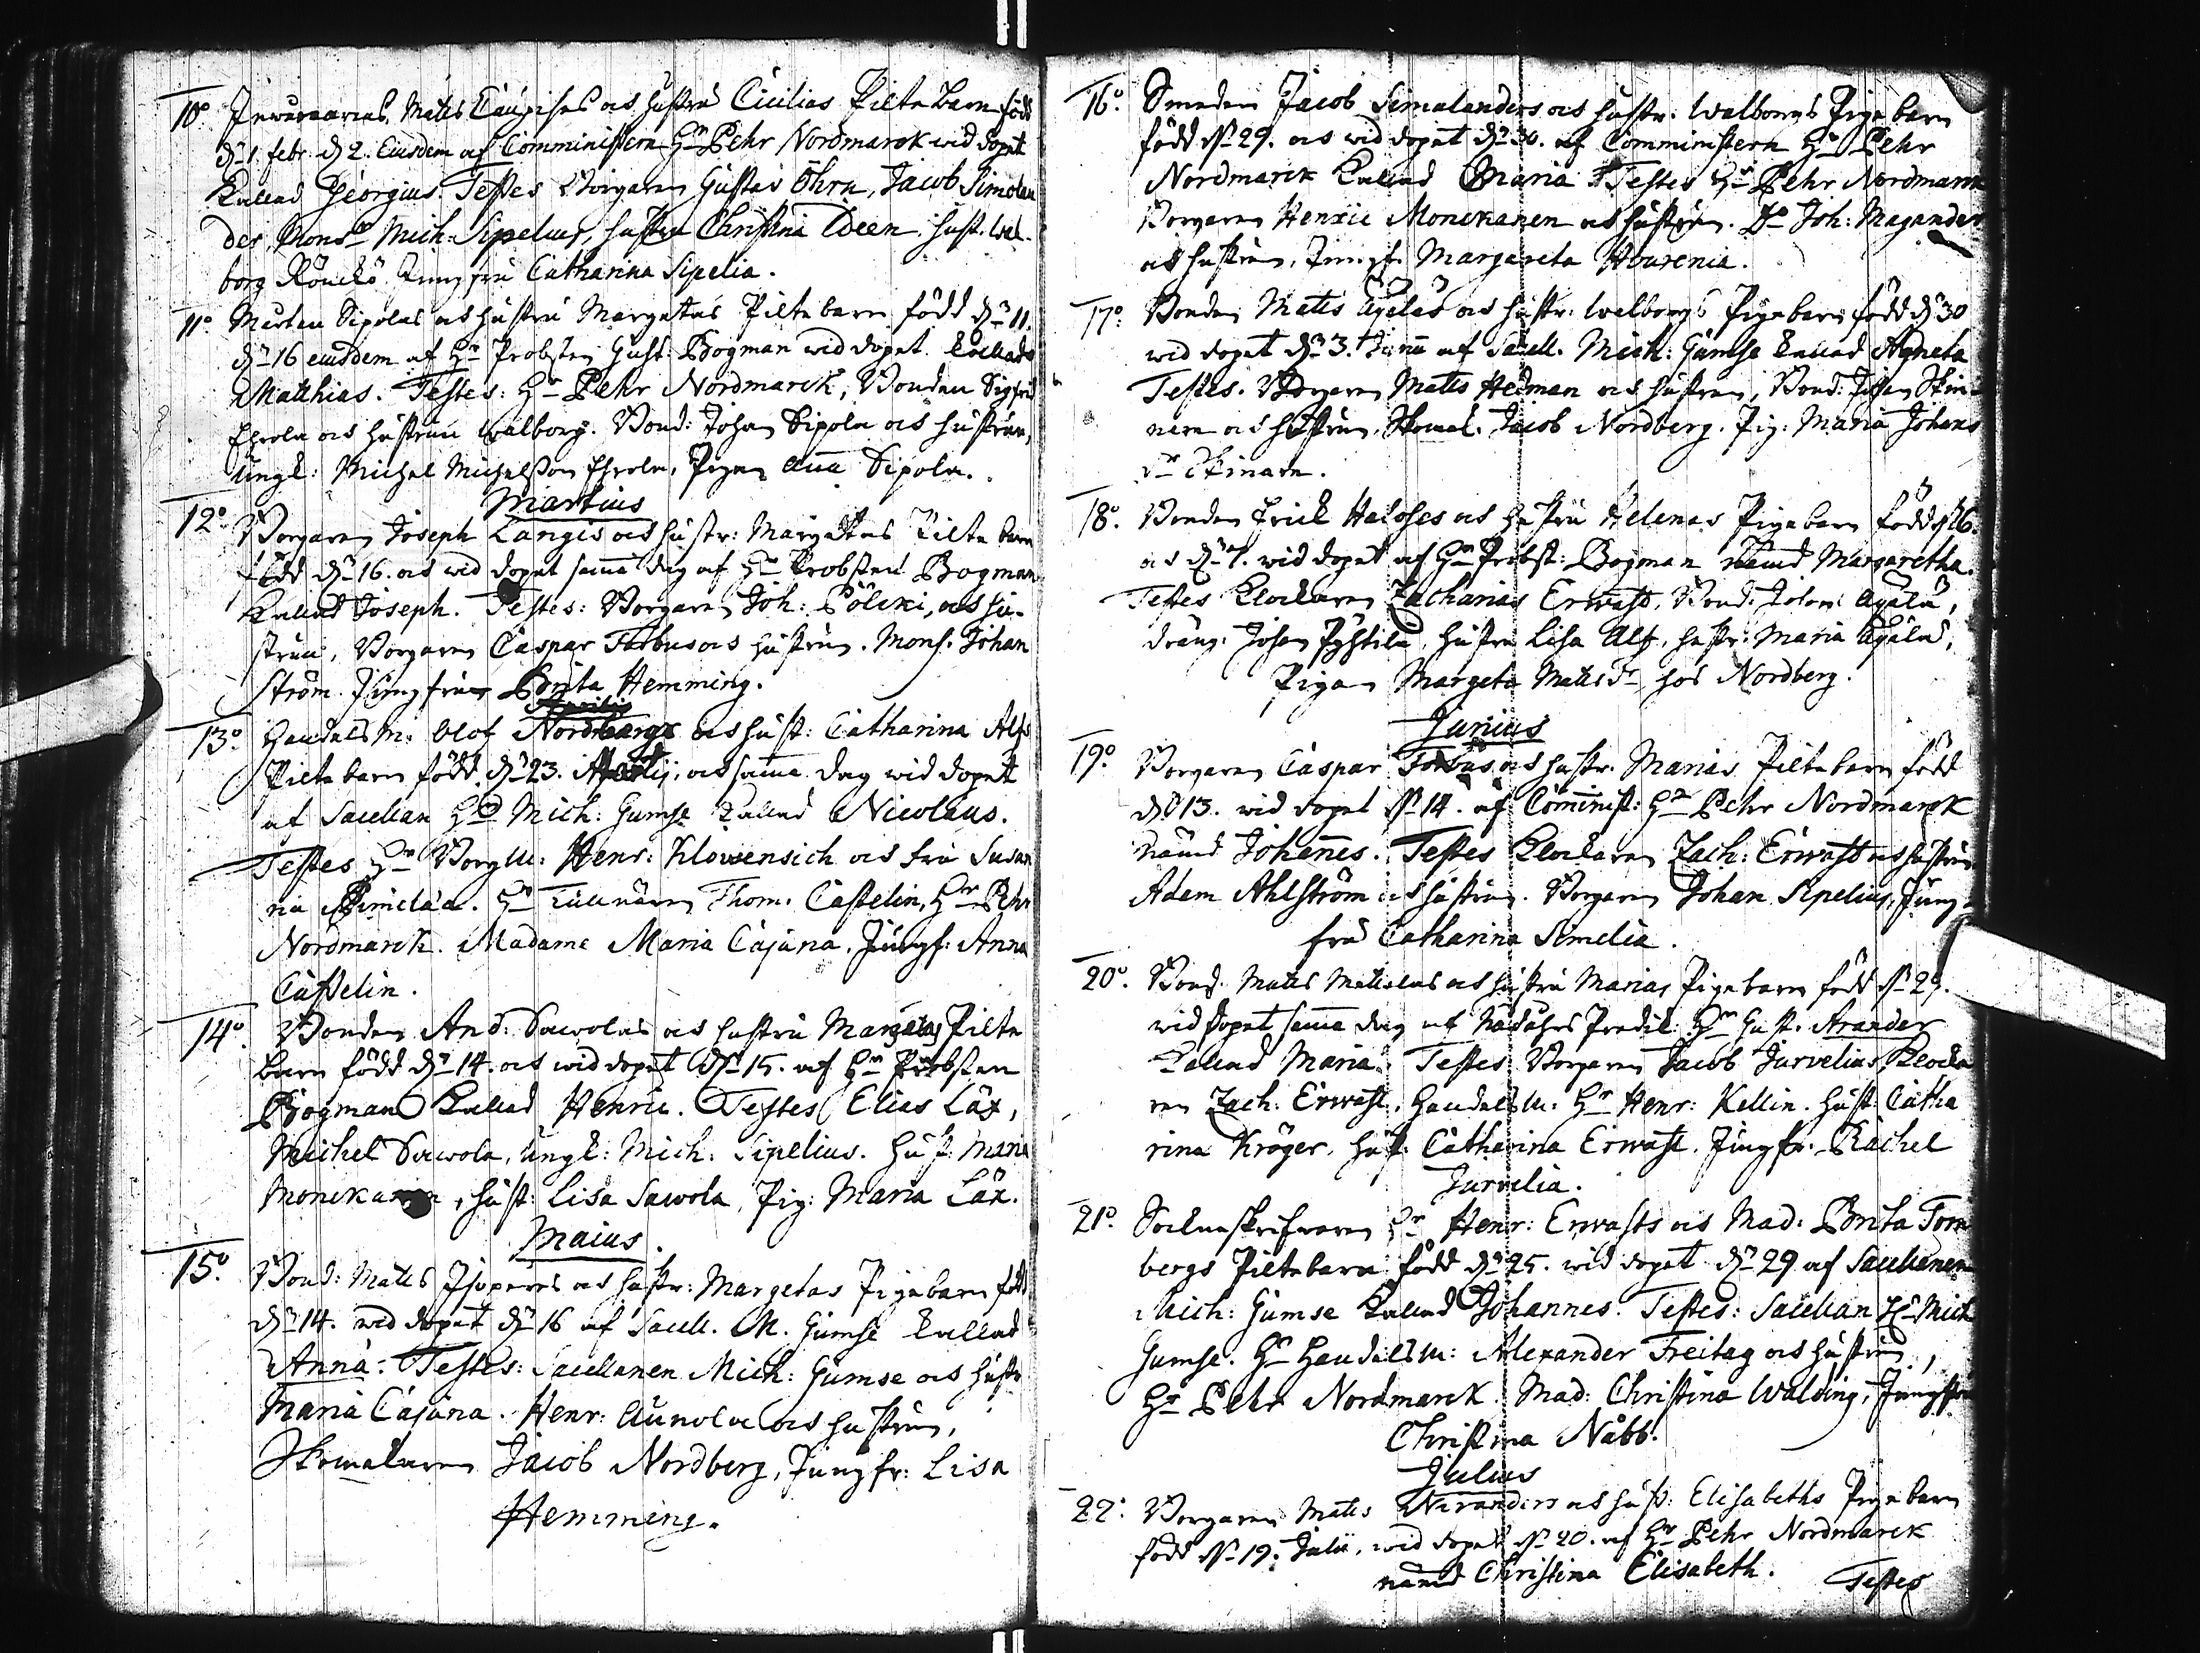 10° Mats och hustru Cicilias Pilte barn född
d: 1 febr. d 2. Eiusdem af Comministern Hr Pehr Nordmarck wid dopet
kallad Georgius. Testes Borgaren Gustav Öhrn, Jacob Simolan
der, Monsr Mich: Sipelius, hustru Christina Ideen, hust. Wal-
borg Jungfru Catharina Sipelia.
11° Mårten Sipolas och hustru Margetas Pilte barn född d: 11.
d: 16 eiusdem af Hr Probsten Gust: Bogman wid dopet kallad
Matthias. Testes: Hr Pehr Nordmarck, Bonden Sigfrid
och hustrun Walborg. Bond: Johan Sipola och hustrun,
Ungk: Michel Michelsson Pigan Anna Sipola.
Martius
12° Borgaren Joseph Langis och hustr: Margetas Pilte barn
född d: 16. och wid dopet samma dag af Hr Probsten Bogman
kallad Joseph. Testes: Borgaren Joh: Pölcki, och hu-
strun, Borgaren Caspar Forbus och hustrun. Mons. Johan
Ström. Jungfru Brita Hemming.
Aprilis
13° Handelsm: Olof Nordbergs och hust: Catharina Alfs
Pilte barn född d: 23. och samma dag wid dopet
af Sacellan Hr Mich: Gumse kallad Nicolaus.
Testes Hr Borgm: Henr: och fru Susan
na Hr Tullnären Thom. Castelin, Hr Pehr
Nordmarck. Madame Maria Cajana. Jungf: Anna
Castelin.
14° Bonden And: Sawolas och hustru Margetas Pilte
barn född d: 14. och wid dopet d: 15. af Hr Probsten
Bogman kallad Henric. Testes Elias Läx,
Michel Sawola, Ungk: Mich. Sipelius. Hust: Maria
, hust: Lisa Sawola, Pig: Maria Läx.
Maius.
15° Bond: Mats och hustr: Margetas Pigabarn född
d: 14. wid dopet d: 16 af Sacell. M. Gumse kallad
Anna. Testes: Sacellanen Mich: Gumse och hustr
Maria Cajana. Henr: Aunola och hustrun,
Skomakaren Jacob Nordberg, Jungfr: Lisa
Hemming.
16° Smeden Jacob Simelanders och hustr. Walborgs Piga barn
född d: 29. och wid dopet d: 30. af Comministern Hr Pehr
Nordmarck kallad Maria. Testes Hr Pehr Nordmarck
Borgaren Henric Monckanen och hustrun. Joh: Magander
och hustrun, Jungf. Margareta Hourenia.
17° Bonden Mats Äyeläs och hustr: Walborgs Pigabarn född d 30
wid dopet d: 3. Junii af Sacell. Mich: Gumse kallad Agneta
Testes. Borgaren Mats Hedman och hustrun, Bond: Johan
och hustrun. Skomak. Jacob Nordberg. Pig: Maria Johans
dr
18° Bonden Erick Haloses och hustru Helenas Pigabarn född d: 6.
och d: 7. wid dopet af Hr Probst: Bogman nämd Margaretha.
Testes Klockaren Zacharias Erwast, Bond: Johan Äyälä,
dräng: Johan Pyhtila, hustru Lisa Alf, hustr: Maria Äyälä,
Pigan Margeta Matsdr hos Nordberg.
Junius
19° Borgaren Caspar Forbus och hustr. Marias Piltebarn född
d: 13. wid dopet d: 14. af Comminist: Hr Pehr Nordmarck
nämd Johannes. Testes Klockaren Zach: Erwast och hustrun
Adam Ahlström och hustrun. Borgaren Johan Sipelius, Jung-
fru Catharina Simelia.
20° Bond. Mats Matilas och hustru Marias Pigabarn född d: 29.
wid dopet samma dag af Nådåhrs Predik: Hr Gust. Arander
kallad Maria. Testes Borgaren Jacob Jurvelius, Klocka
ren Zach: Erwast, Handelsm: Hr Henr: Kellin. Hust: Catha
rina Kröger, hust: Catharina Erwast. Jungfr: Rachel
Jurvelia.
21° Sochnskrifwaren Hr Henr: Erwasts och Mad: Brita Torn
bergs Piltebarn född d: 25. wid dopet d: 29 af Sacellanen
Mich: Gumse kallad Johannes. Testes: Sacellan Hr Mich
Gumse. Hr Handelsm: Alexander Freitag och hustrun,
Hr Pehr Nordmarck. Mad: Christina Walding, Jungfru
Christina Nåbb.
Julius
22° Borgaren Mats Niranders och hust: Elisabeths Pigabarn
född d: 19. Julii, wid dopet d: 20. af Hr Pehr Nordmarck
nämd Christina Elisabeth. Testes